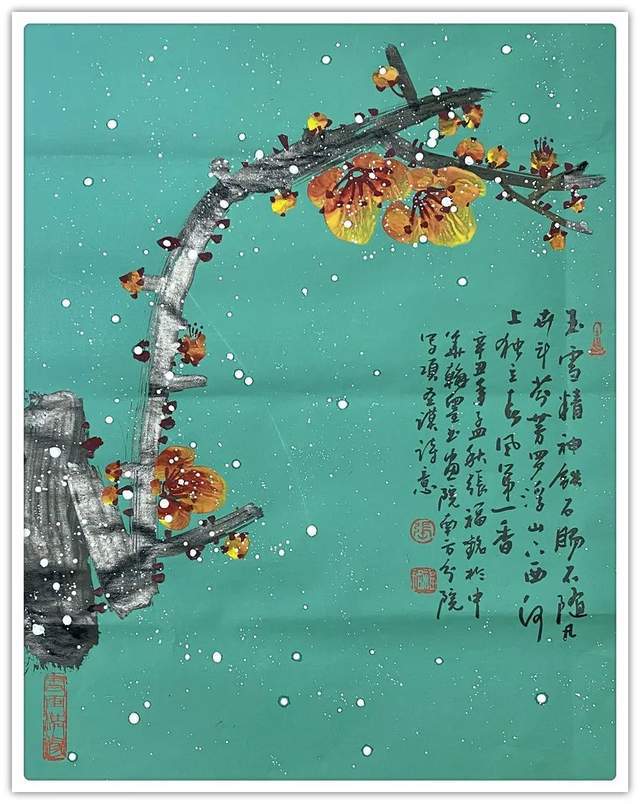 玉雪精神铁石肠不随凡
卉斗芬芳罗浮山下西河
上独立春风第一香
辛丑年孟秋张福铭於中
华翰墨书画院南方分院
写项圣谟诗意
张